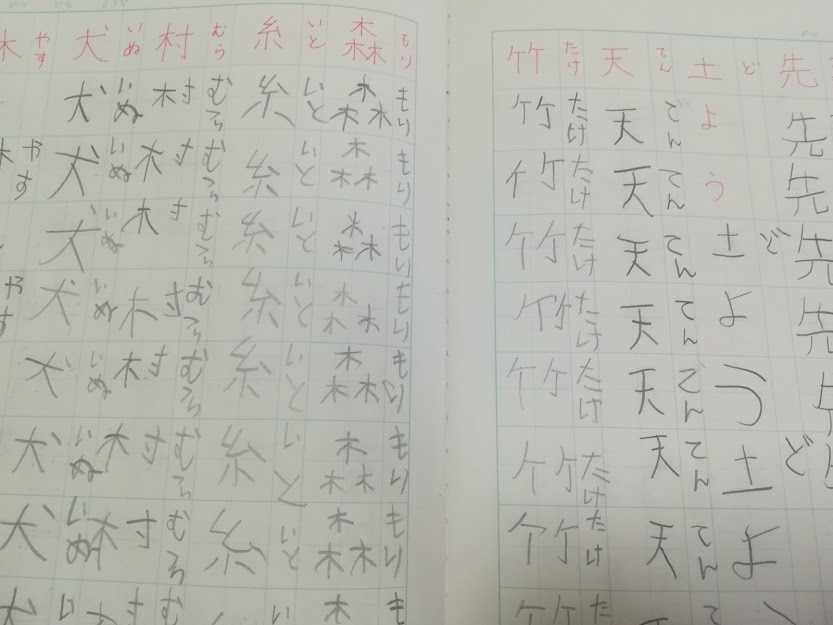 先先先先先
どどど
土よう土よう土よ
てんてんてんてんてんてんてんてん
天天天天天天天天
たけたけたけたけたけたけたけたけ
竹竹竹竹竹竹竹竹
もりもりもりもりもりもりもりもり
森森森森森森森森
いといといといといといといといと
糸糸糸糸糸糸糸糸
むらむらむらむらむらむらむらむら
村村村村村村村村
いぬいぬいぬいぬいぬいぬいぬいぬ
犬犬犬犬犬犬犬犬
やすやすやす